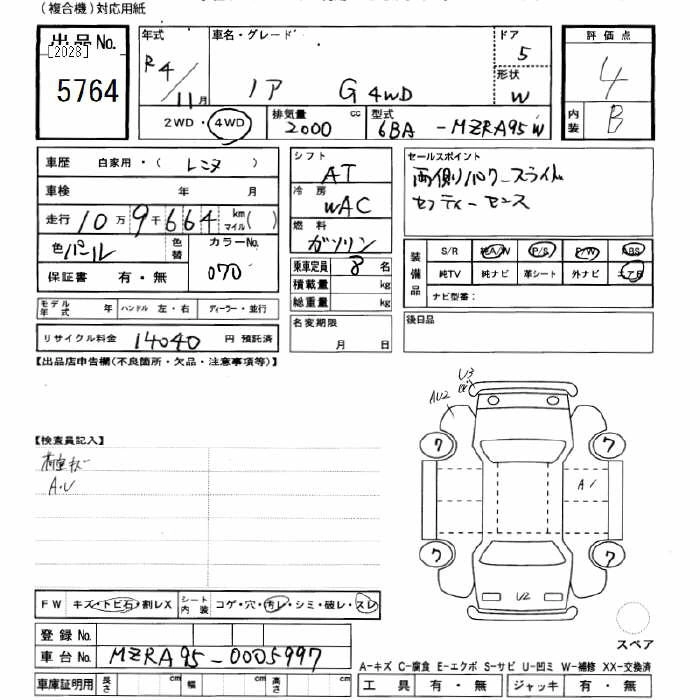 (複合機)対応用紙
出品No.
[2028]
5764
年式
R4/11月
車名・グレード
ノア G 4WD
ドア
5
形状
W
評価点
4
内装
B
2WD・4WD
排気量 cc
2000
型式
6BA-MZRA95W
車歴 自家用・(レンタ)
車検 年 月
走行 10万9千664 km マイル( )
色 パール 色替
カラーNo.
070
保証書 有・無
モデル年式 年 ハンドル 左・右 ディーラー・並行
リサイクル料金 14040 円 預託済
シフト
AT
冷房
WAC
燃料
ガソリン
乗車定員 8 名
積載量 kg
総重量 kg
名変期限
月 日
セールスポイント
両側パワースライド
セフティーセンス
装備品
S/R 純A/W P/S P/W ABS
純TV 純ナビ 革シート 外ナビ エアB
ナビ型番:
後日品
【出品店申告欄(不良箇所・欠品・注意事項等)】
【検査員記入】
A.U
U3
AU2
7
7
A1
7
7
U2
スペア
FW キズ・トビ石・割レX シート内装 コゲ・穴・汚レ・シミ・破レ・スレ
登録No.
車台No. MZRA95-0005997
車庫証明用 長さ cm 幅 cm 高さ cm
A-キズ C-腐食 E-エクボ S-サビ U-凹ミ W-補修 XX-交換済
工具 有・無 ジャッキ 有・無